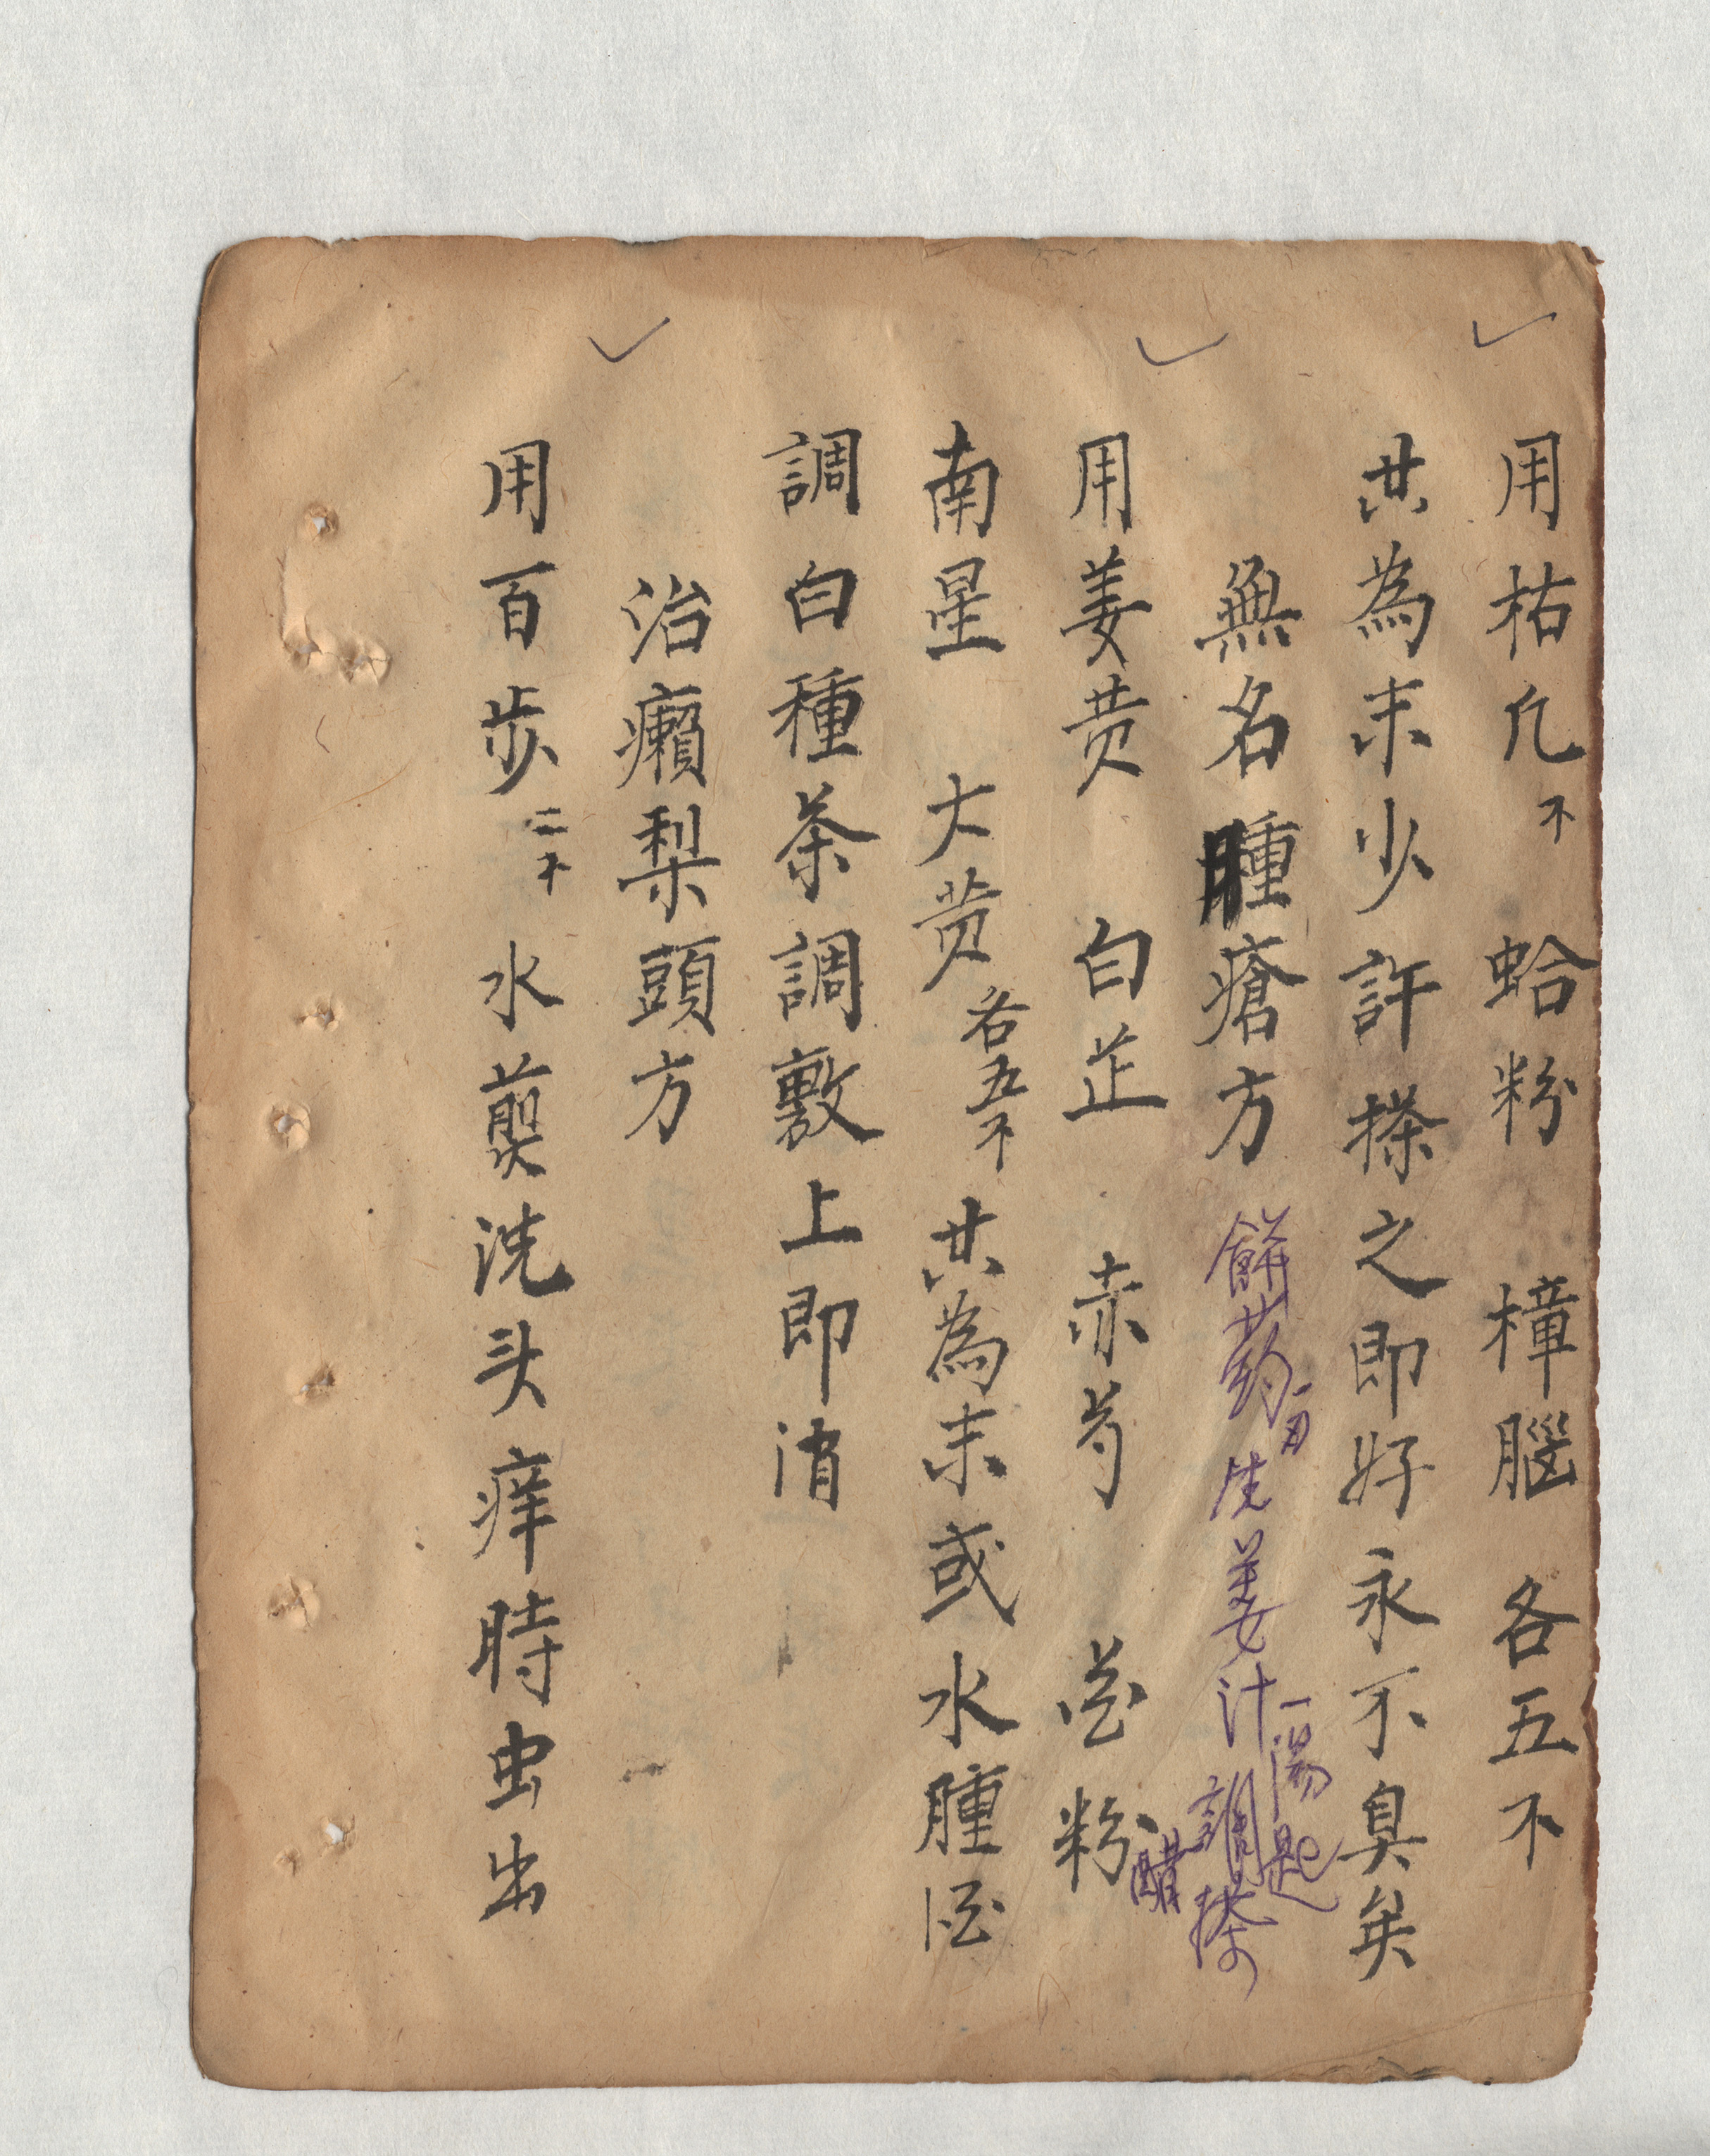 用枯凡不 蛤粉 樟腦 各五不
共為末少許搽之即好永不臭矣
無名腫瘡方 餅药一刃 生姜汁 一湯匙 調搽 醋
用姜黄 白芷 赤芍 花粉
南星 大黄各五不 共為末或水腫酒
調白種茶調敷上即消
治癩梨頭方
用百步二不 水煎洗头痒時虫出